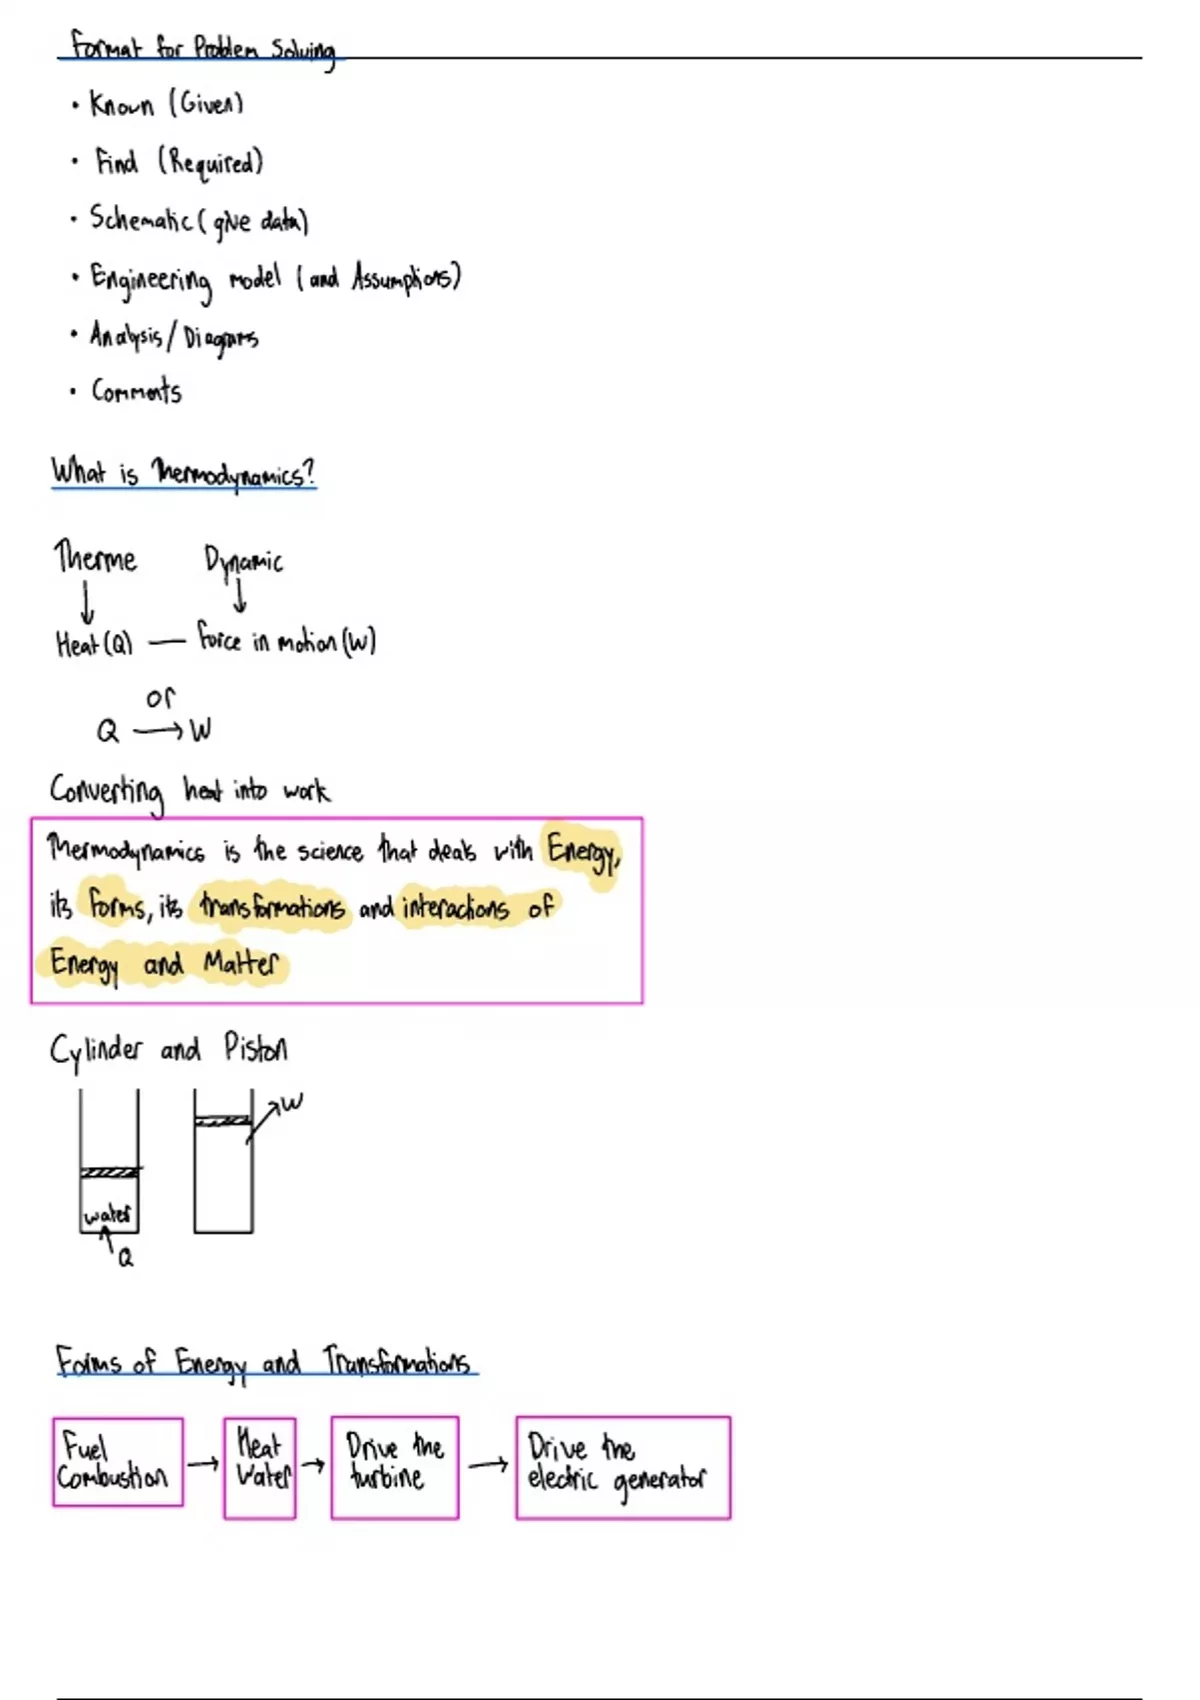 Format for Problem Solving
• Known (Given)
• Find (Required)
• Schematic (give data)
• Engineering model (and Assumptions)
• Analysis/Diagrams
• Comments
What is Thermodynamics?
Therme Dynamic
Heat (Q) — Force in motion (W)
or
Q → W
Converting heat into work
Thermodynamics is the science that deals with Energy,
its forms, its transformations and interactions of
Energy and Matter
Cylinder and Piston
W
water
Q
Forms of Energy and Transformations
Fuel Combustion → Heat Water → Drive the turbine → Drive the electric generator